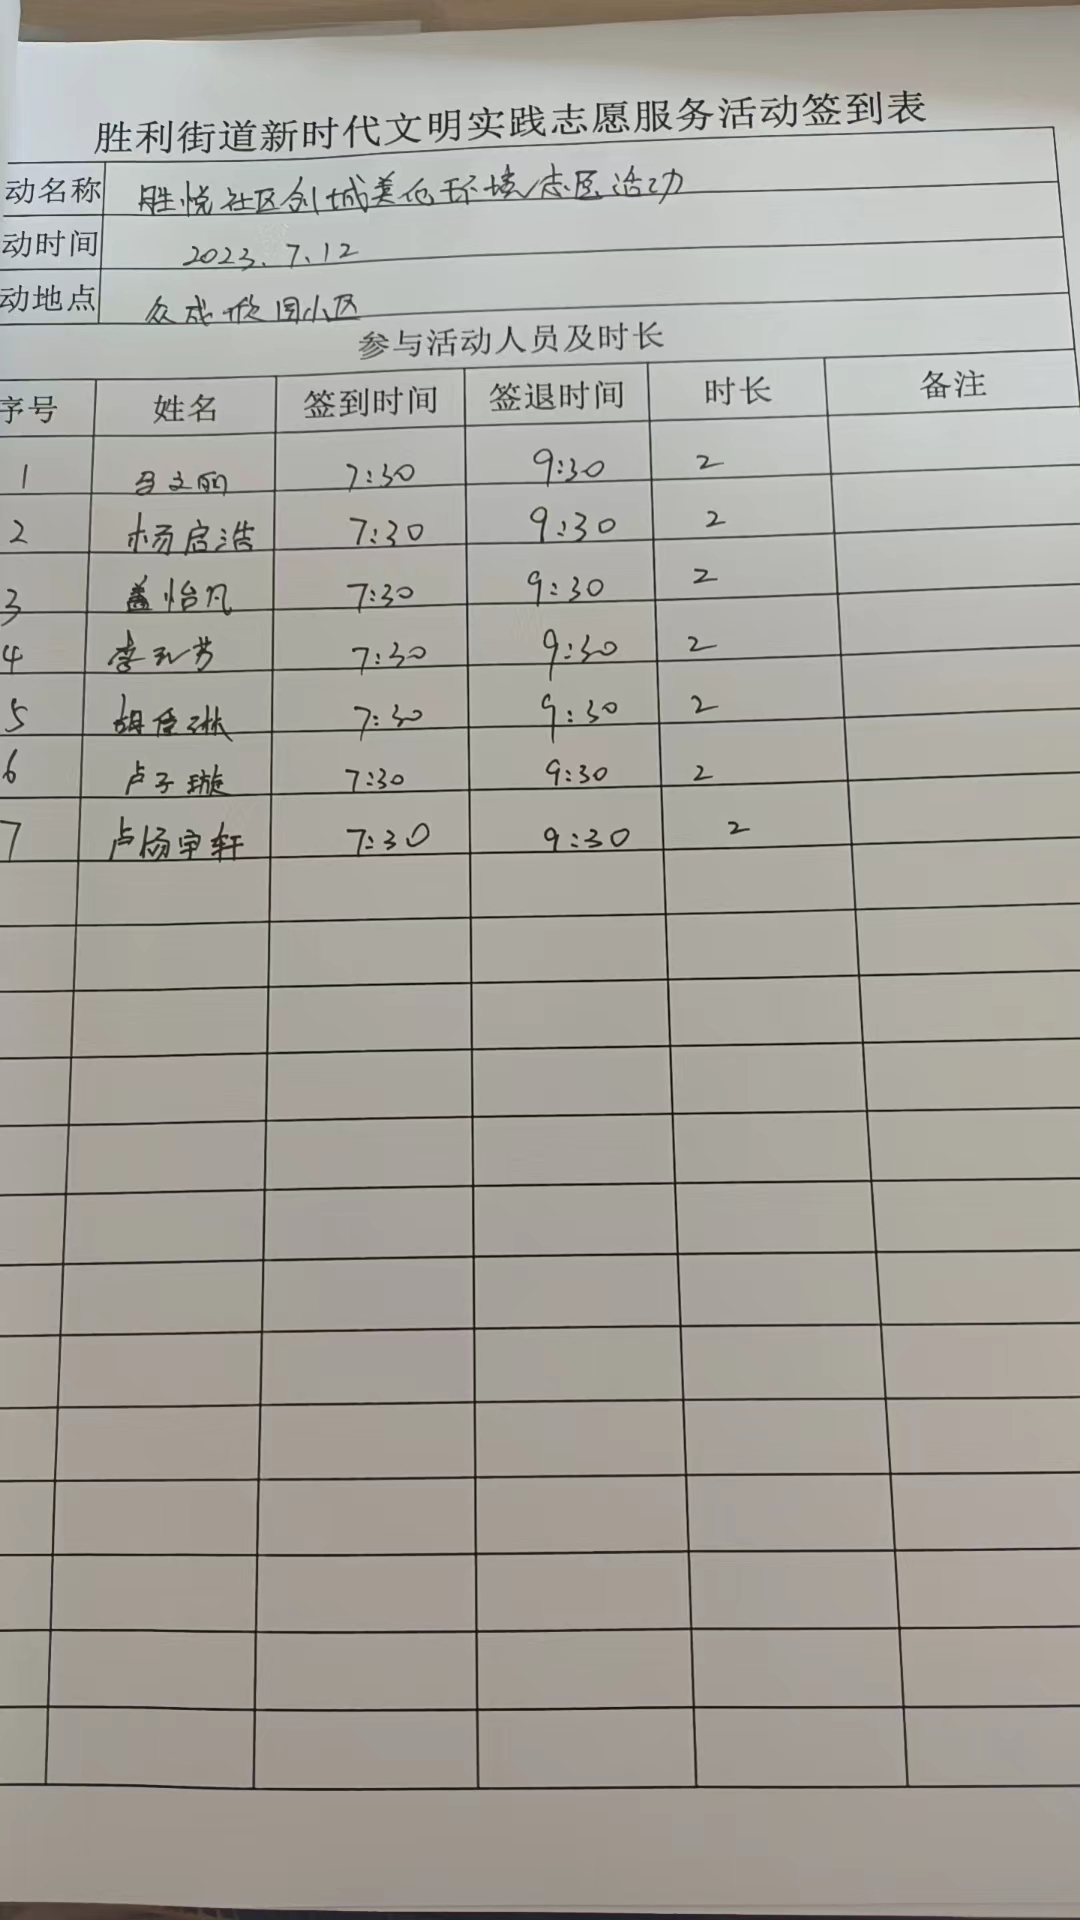 胜利街道新时代文明实践志愿服务活动签到表
动名称 胜悦社区创城美化环境志愿活动
动时间 2023.7.12
动地点 众成欣园小区
参与活动人员及时长
序号 姓名 签到时间 签退时间 时长 备注
1 马文丽 7:30 9:30 2
2 杨启浩 7:30 9:30 2
3 盖怡凡 7:30 9:30 2
4 李 7:30 9:30 2
5 胡 琳 7:30 9:30 2
6 卢子璇 7:30 9:30 2
7 卢杨宇轩 7:30 9:30 2